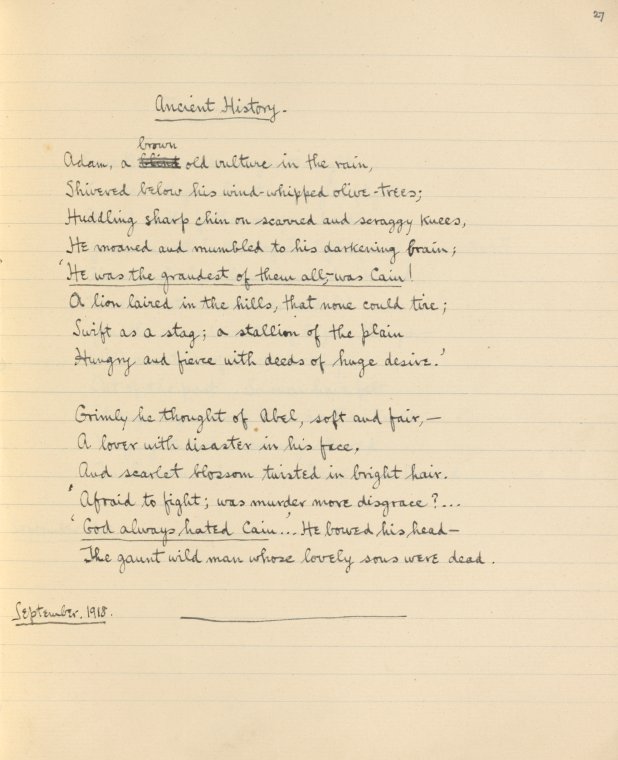 27
Ancient History.
brown
Adam, a blind old vulture in the rain,
Shivered below his wind-whipped olive-trees;
Huddling sharp chin on scarred and scraggy knees,
He moaned and mumbled to his darkening brain;
'He was the grandest of them all,—was Cain!
A lion laired in the hills, that none could tire;
Swift as a stag; a stallion of the plain
Hungry and fierce with deeds of huge desire.'
Grimly he thought of Abel, soft and fair,—
A lover with disaster in his face,
And scarlet blossom twisted in bright hair.
'Afraid to fight; was murder more disgrace?...
'God always hated Cain'... He bowed his head—
The gaunt wild man whose lovely sons were dead.
September. 1918.